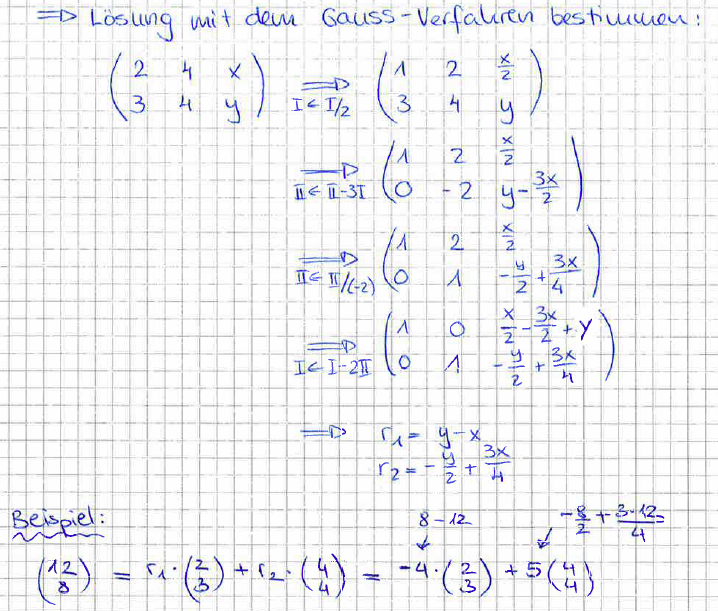 ⇒ Lösung mit dem Gauss-Verfahren bestimmen:
(2 4 x; 3 4 y) ⇒ I ← I/2 (1 2 x/2; 3 4 y)
⇒ II ← II-3I (1 2 x/2; 0 -2 y-3x/2)
⇒ II ← II/(-2) (1 2 x/2; 0 1 -y/2 + 3x/4)
⇒ I ← I-2II (1 0 x/2 - 3x/2 + y; 0 1 -y/2 + 3x/4)
⇒ r₁ = y-x
r₂ = -y/2 + 3x/4
Beispiel: 8-12 -8/2 + 3·12/4 =
(12; 8) = r₁·(2; 3) + r₂·(4; 4) = -4·(2; 3) + 5(4; 4)